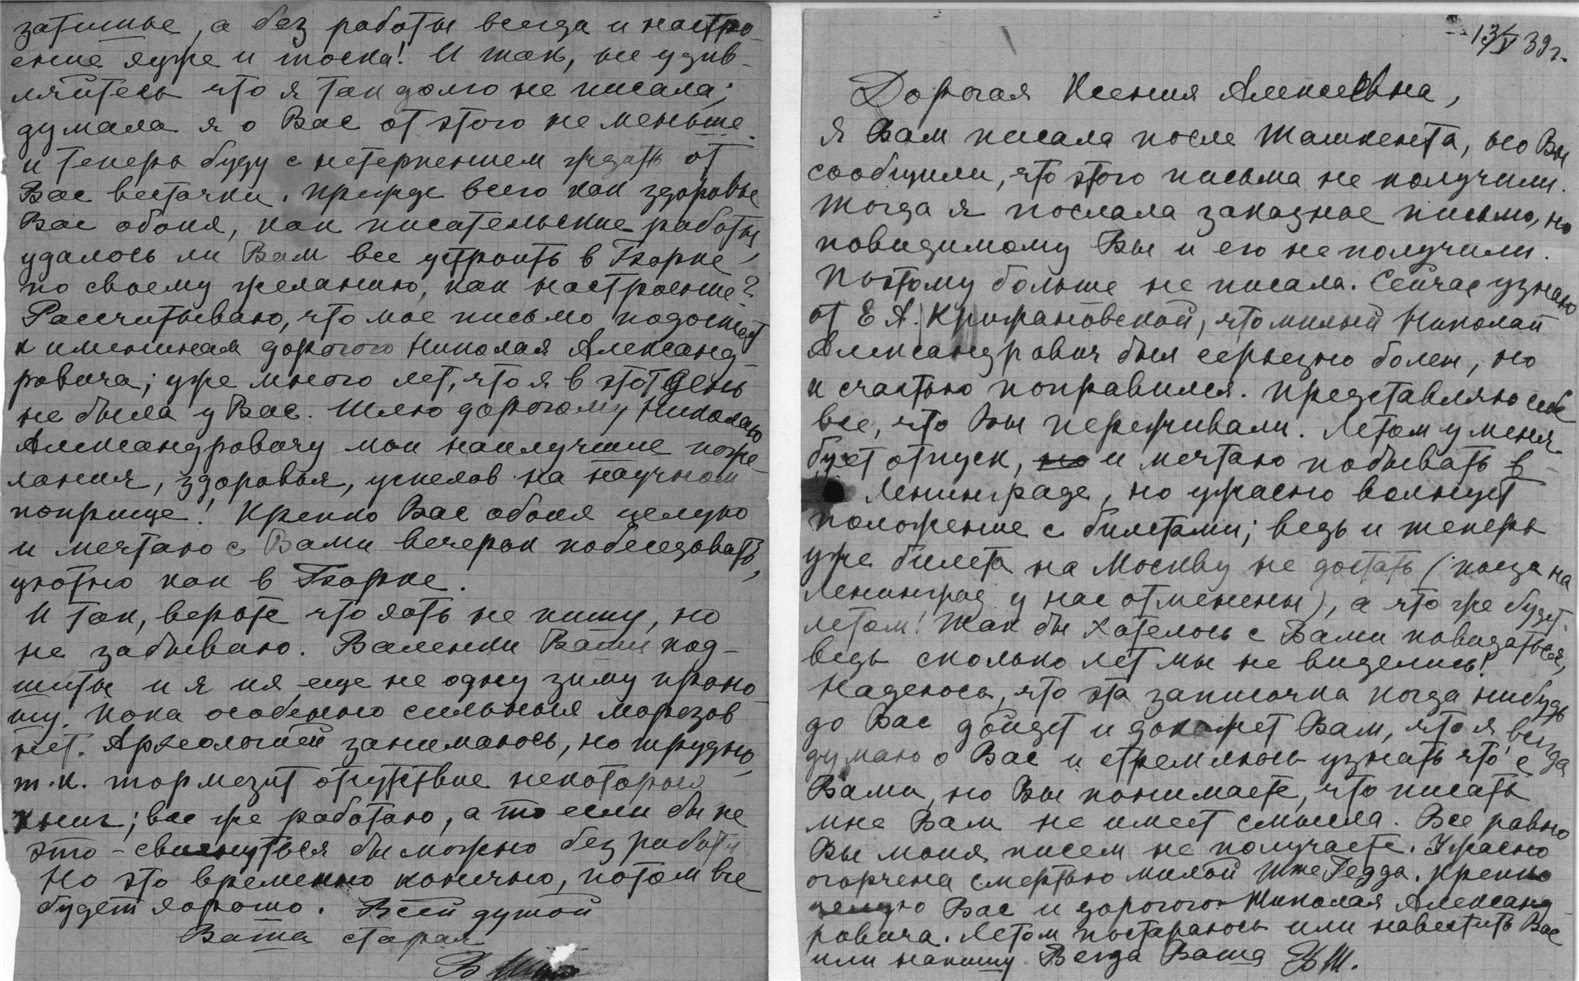 затишье, а без работы всегда и настро-
ение хуже и тоска! И так, не удив-
ляйтесь что я так долго не писала;
думала я о Вас от этого не меньше
и теперь буду с нетерпением ждать от
Вас весточки. Прежде всего как здоровье
Вас обоих, как писательские работы,
удалось ли Вам все устроить в Борке
по своему желанию, как настроение?
Рассчитываю, что мое письмо подоспеет
к именинам дорогого Николая Александ
ровича; уже много лет, что я в этот день
не была у Вас. Шлю дорогому Николаю
Александровичу мои наилучшие поже
лания, здоровья, успехов на научном
поприще! Крепко Вас обоих целую
и мечтаю с Вами вечерок побеседовать,
уютно как в Борке.
И так, верьте что хоть не пишу, но
не забываю. Валенки Ваши под-
шиты и я их еще не одну зиму проно
шу. Пока особенно сильных морозов
нет. Археологией занимаюсь, но трудно,
т.к. тормозит отсутствие некоторых
книг; все же работаю, а то если бы не
это - свихнуться бы можно без работы
Но это временно конечно, потом все
будет хорошо. Всей душой
Ваша старая
В
13/V 39 г.
Дорогая Ксения Алексеевна,
я Вам писала после Ташкента, но Вы
сообщили, что этого письма не получили.
Тогда я послала заказное письмо, но
повидимому Вы и его не получили.
Поэтому больше не писала. Сейчас узнаю
от Е А. Крижановской, что милый Николай
Александрович был серьезно болен, но
к счастью поправился. Представляю себе
все, что Вы переживали. Летом у меня
будет отпуск, но и мечтаю побывать в
Ленинграде, но ужасно волнует
положение с билетами; ведь и теперь
уже билета на Москву не достать (поезда на
Ленинград у нас отменены), а что же будет
летом! Как бы хотелось с Вами повидаться,
ведь сколько лет мы не виделись!
Надеюсь, что эта записочка когда нибудь
до Вас дойдет и докажет Вам, что я всегда
думаю о Вас и стремлюсь узнать что с
Вами, но Вы понимаете, что писать
мне Вам не имеет смысла. Все равно
Вы моих писем не получаете. Ужасно
огорчена смертью милой Гедда. Крепко
целую Вас и дорогого Николая Александ
ровича. Летом постараюсь или навестить Вас
или напишу. Всегда Ваша ВШ.